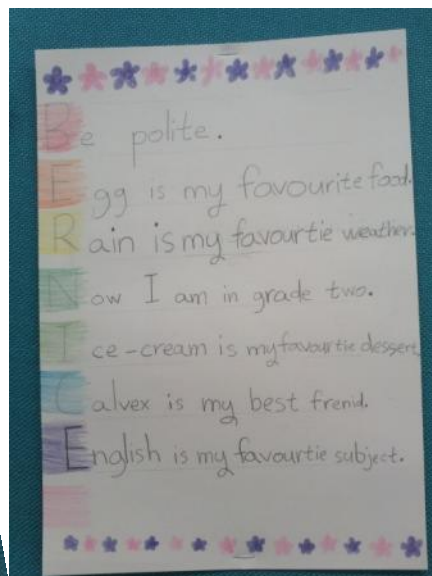 Be polite.
Egg is my favourite food.
Rain is my favourtie weather.
Now I am in grade two.
Ice-cream is my favourtie dessert.
Calvex is my best frenid.
English is my favourtie subject.